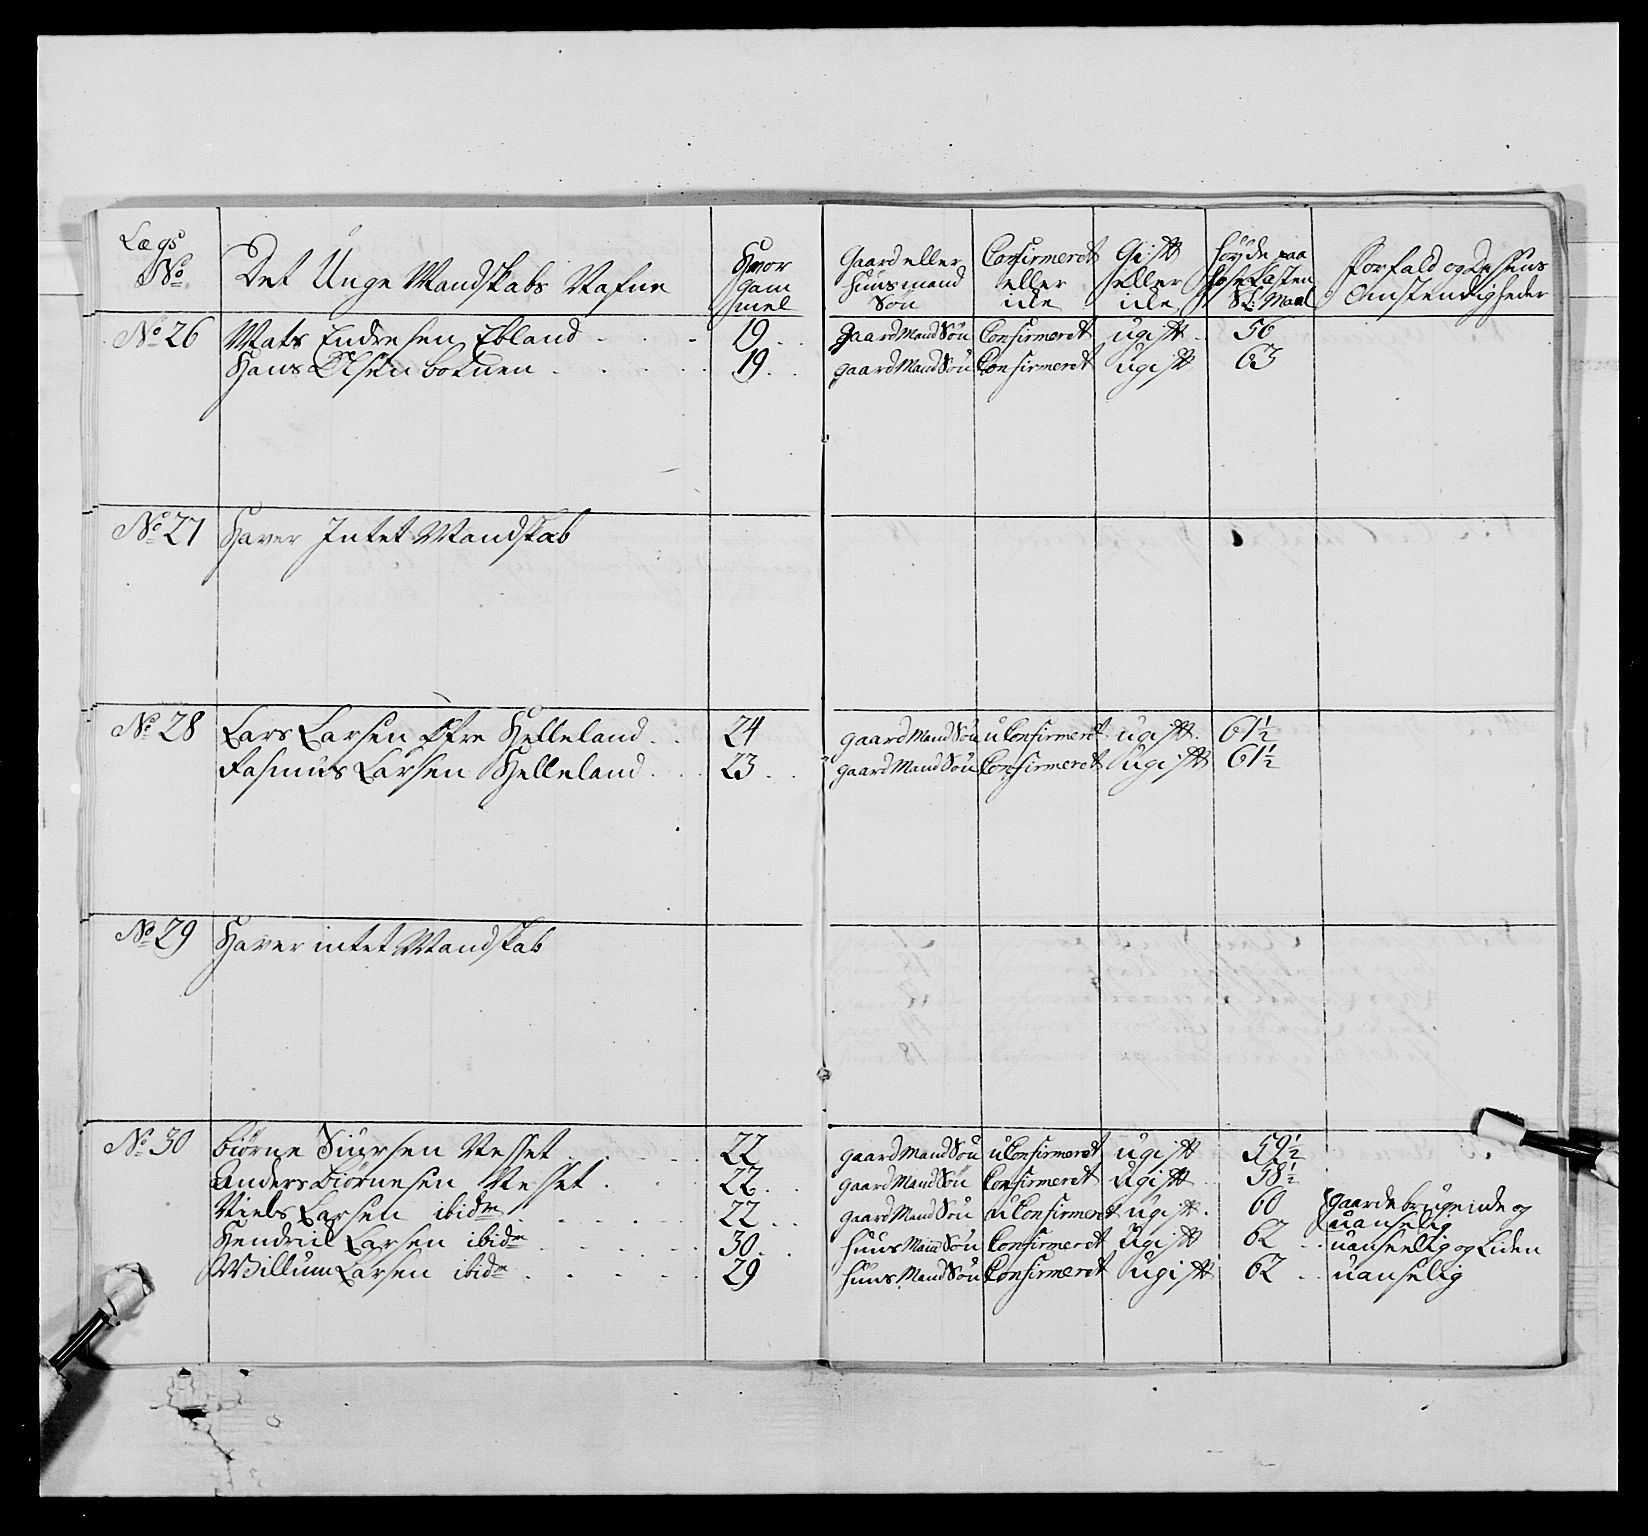 Lægs No | Det Unge Mandskabs Nafne | Hvor gam mel | Gaard eller Huusmand Søn | Confirmeret eller icke | Gift eller icke | Høyde paa Hose Låsten St: Maal | Forfald og Dessens Omstendigheder
No 26 | Mats Endresen Ebland | 19 | gaard Mand Søn | Confirmeret | ugift | 56
Hans Olsen Botnen | 19 | gaard Mand Søn | Confirmeret | ugift | 63
No 27 | Haver Intet Mandskab
No 28 | Lars Larsen Øfre Helleland | 24 | gaard Mand Søn | uConfirmeret | ugift | 61½
Rasmus Larsen Helleland | 23 | gaard Mand Søn | Confirmeret | ugift | 61½
No 29 | Haver intet Mandskab
No 30 | Biørne Siursen Nesset | 22 | gaard Mand Søn | uConfirmeret | ugift | 59½
Anders Biørnesen Nesset | 22 | gaard Mand Søn | Confirmeret | ugift | 58½
Niels Larsen ibidm | 22 | gaard Mand Søn | uConfirmeret | ugift | 60 | gaardebrugende og uanselig
Hendrik Larsen ibidm | 30 | Huus Mand Søn | Confirmeret | ugift | 62 | uanseelig og Liden
Willum Larsen ibidm | 29 | Huus Mand Søn | Confirmeret | ugift | 62 | uanselig